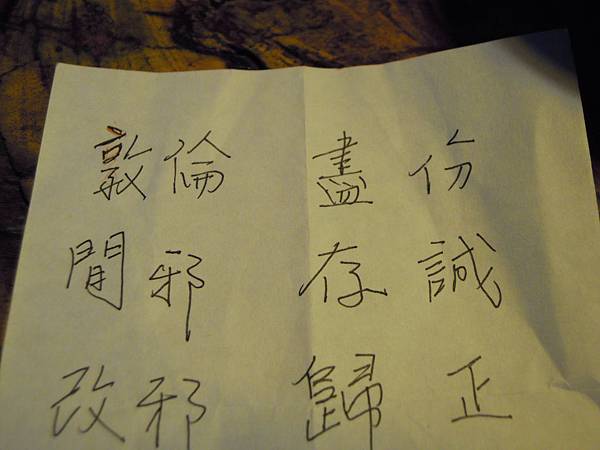 敦倫 盡份
閒邪 存誠
改邪 歸正